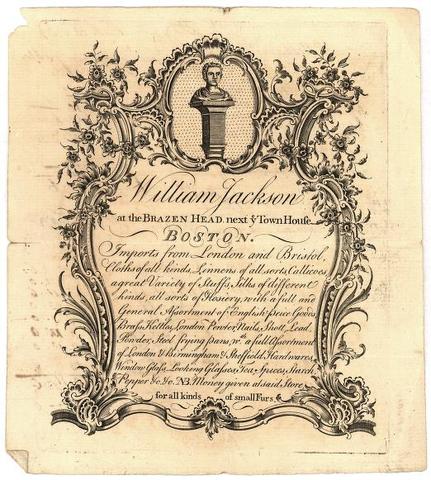 William Jackson
at the BRAZEN HEAD next ẙ Town House
BOSTON.
Imports from London and Bristol,
Cloths of all kinds, Linnens of all sorts, Callicoes,
a great Variety of Stuffs, Silks of different
kinds, all sorts of Hosiery, with a full and
General Assortment of English Peice Goods
Brass Kettles, London Pewter, Nails, Shott, Lead,
Powder, Steel frying pans, wth. a full Assortment
of London & Birmingham & Sheffield Hardwares,
Window Glass, Looking Glasses, Tea, Spices, Starch
Pepper &c. &c. NB. Money given at said Store
for all kinds of small Furs